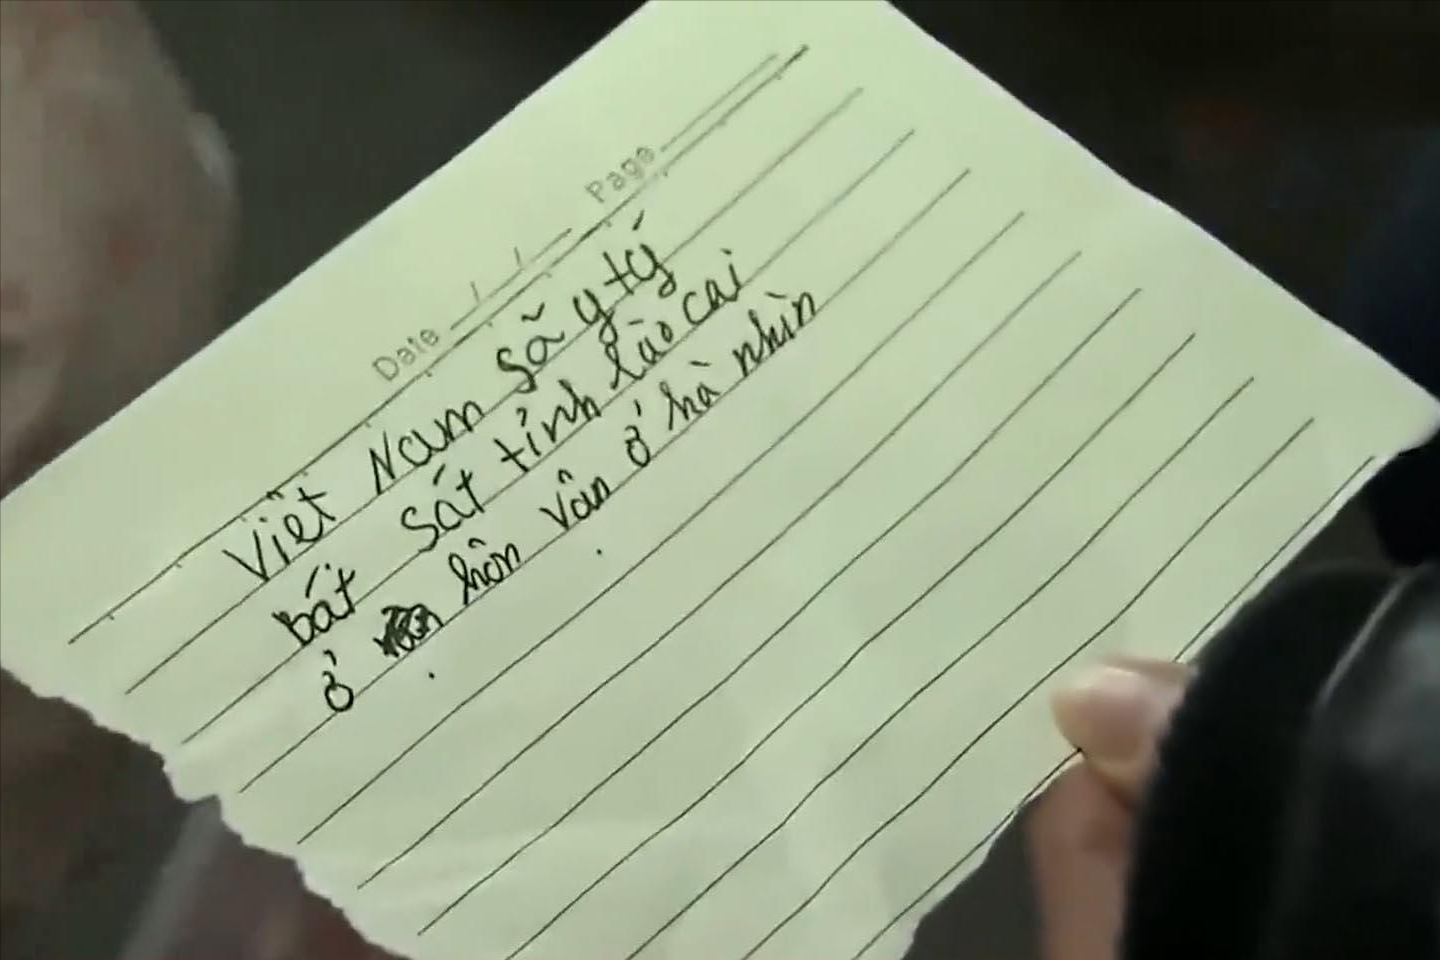 Date / / Page
Việt Nam sã y tý
bát sát tỉnh lào cai
ở hôn vân ở hà nhìn